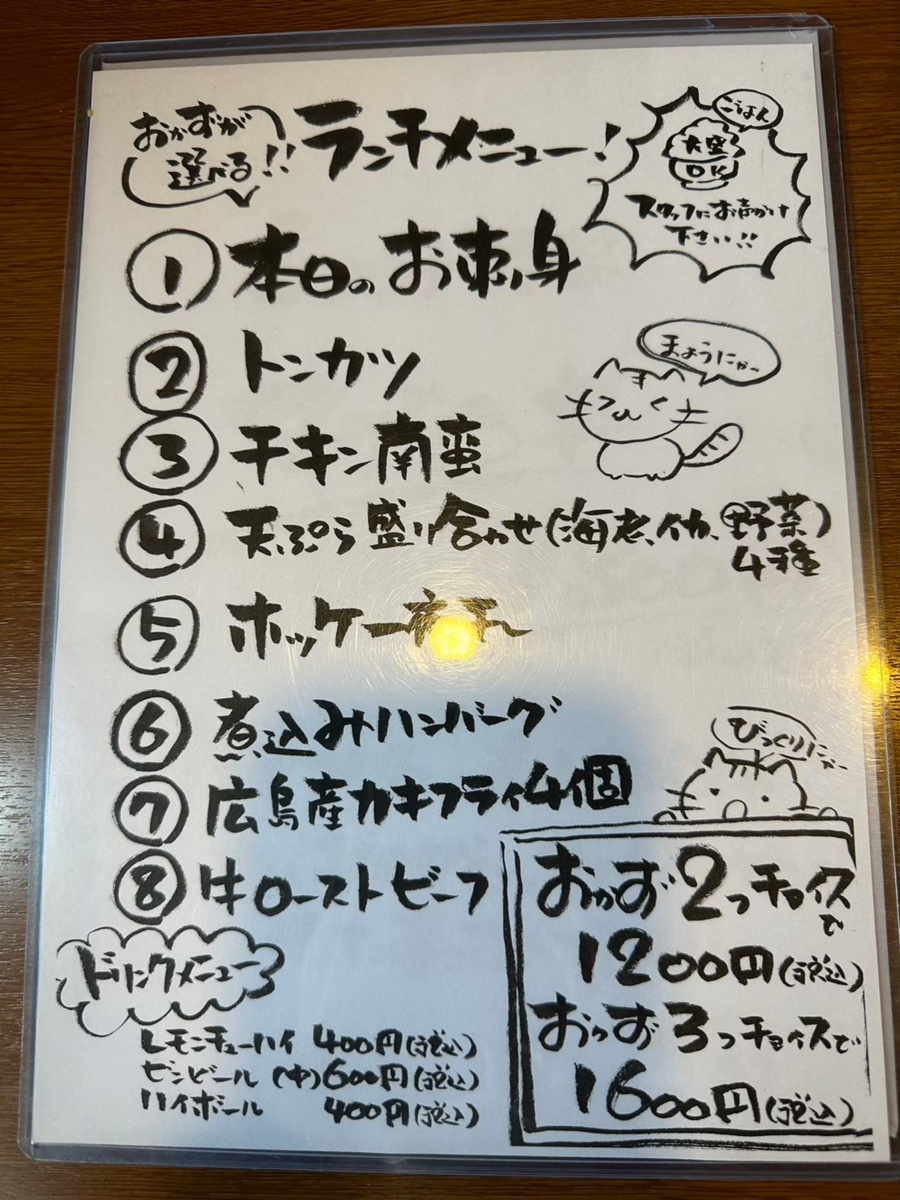 おかずが
選べる!!
ランチメニュー!
ごはん
大盛
OK
スタッフにお声かけ
下さい!!
① 本日のお刺身
② トンカツ
まようにゃー
③ チキン南蛮
④ 天ぷら盛り合わせ(海老、イカ、野菜)
4種
⑤ ホッケ一夜干し
⑥ 煮込みハンバーグ
びっくりにゃー
⑦ 広島産カキフライ4個
⑧ 牛ローストビーフ
おかず2つチョイスで
1200円(税込)
おかず3つチョイスで
1600円(税込)
ドリンクメニュー
レモンチューハイ 400円(税込)
ビンビール (中)600円(税込)
ハイボール 400円(税込)